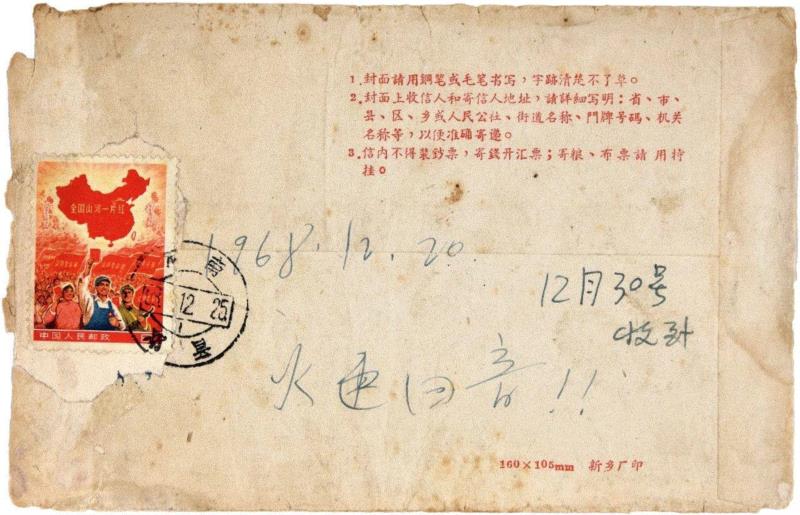 1.封面請用鋼笔或毛笔书写，字跡清楚不了草。
2.封面上收信人和寄信人地址，請詳細写明：省、市、
县、区、乡或人民公社、街道名称、門牌号碼、机关
名称等，以便准确寄递。
3.信内不得裝鈔票，寄錢开汇票；寄粮、布票請用特
挂。
全国山河一片红
中国人民邮政
1968.12.20
12 25
12月30号
收到
火速回音!!
160×105mm 新乡厂印